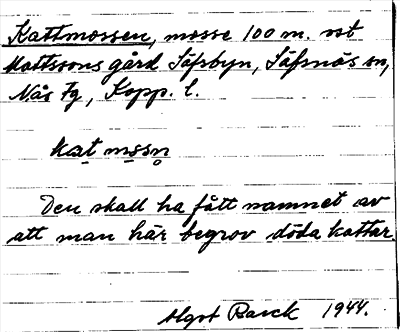 Kattmossen, mosse 100 m. ost
Mattssons gård Säfsbyn, Säfsnäs sn,
Nås Fg, Kopp. l.
kat mssn
Den skall ha fått namnet av
att man här begrov döda kattar.
Algot Barck 1944.